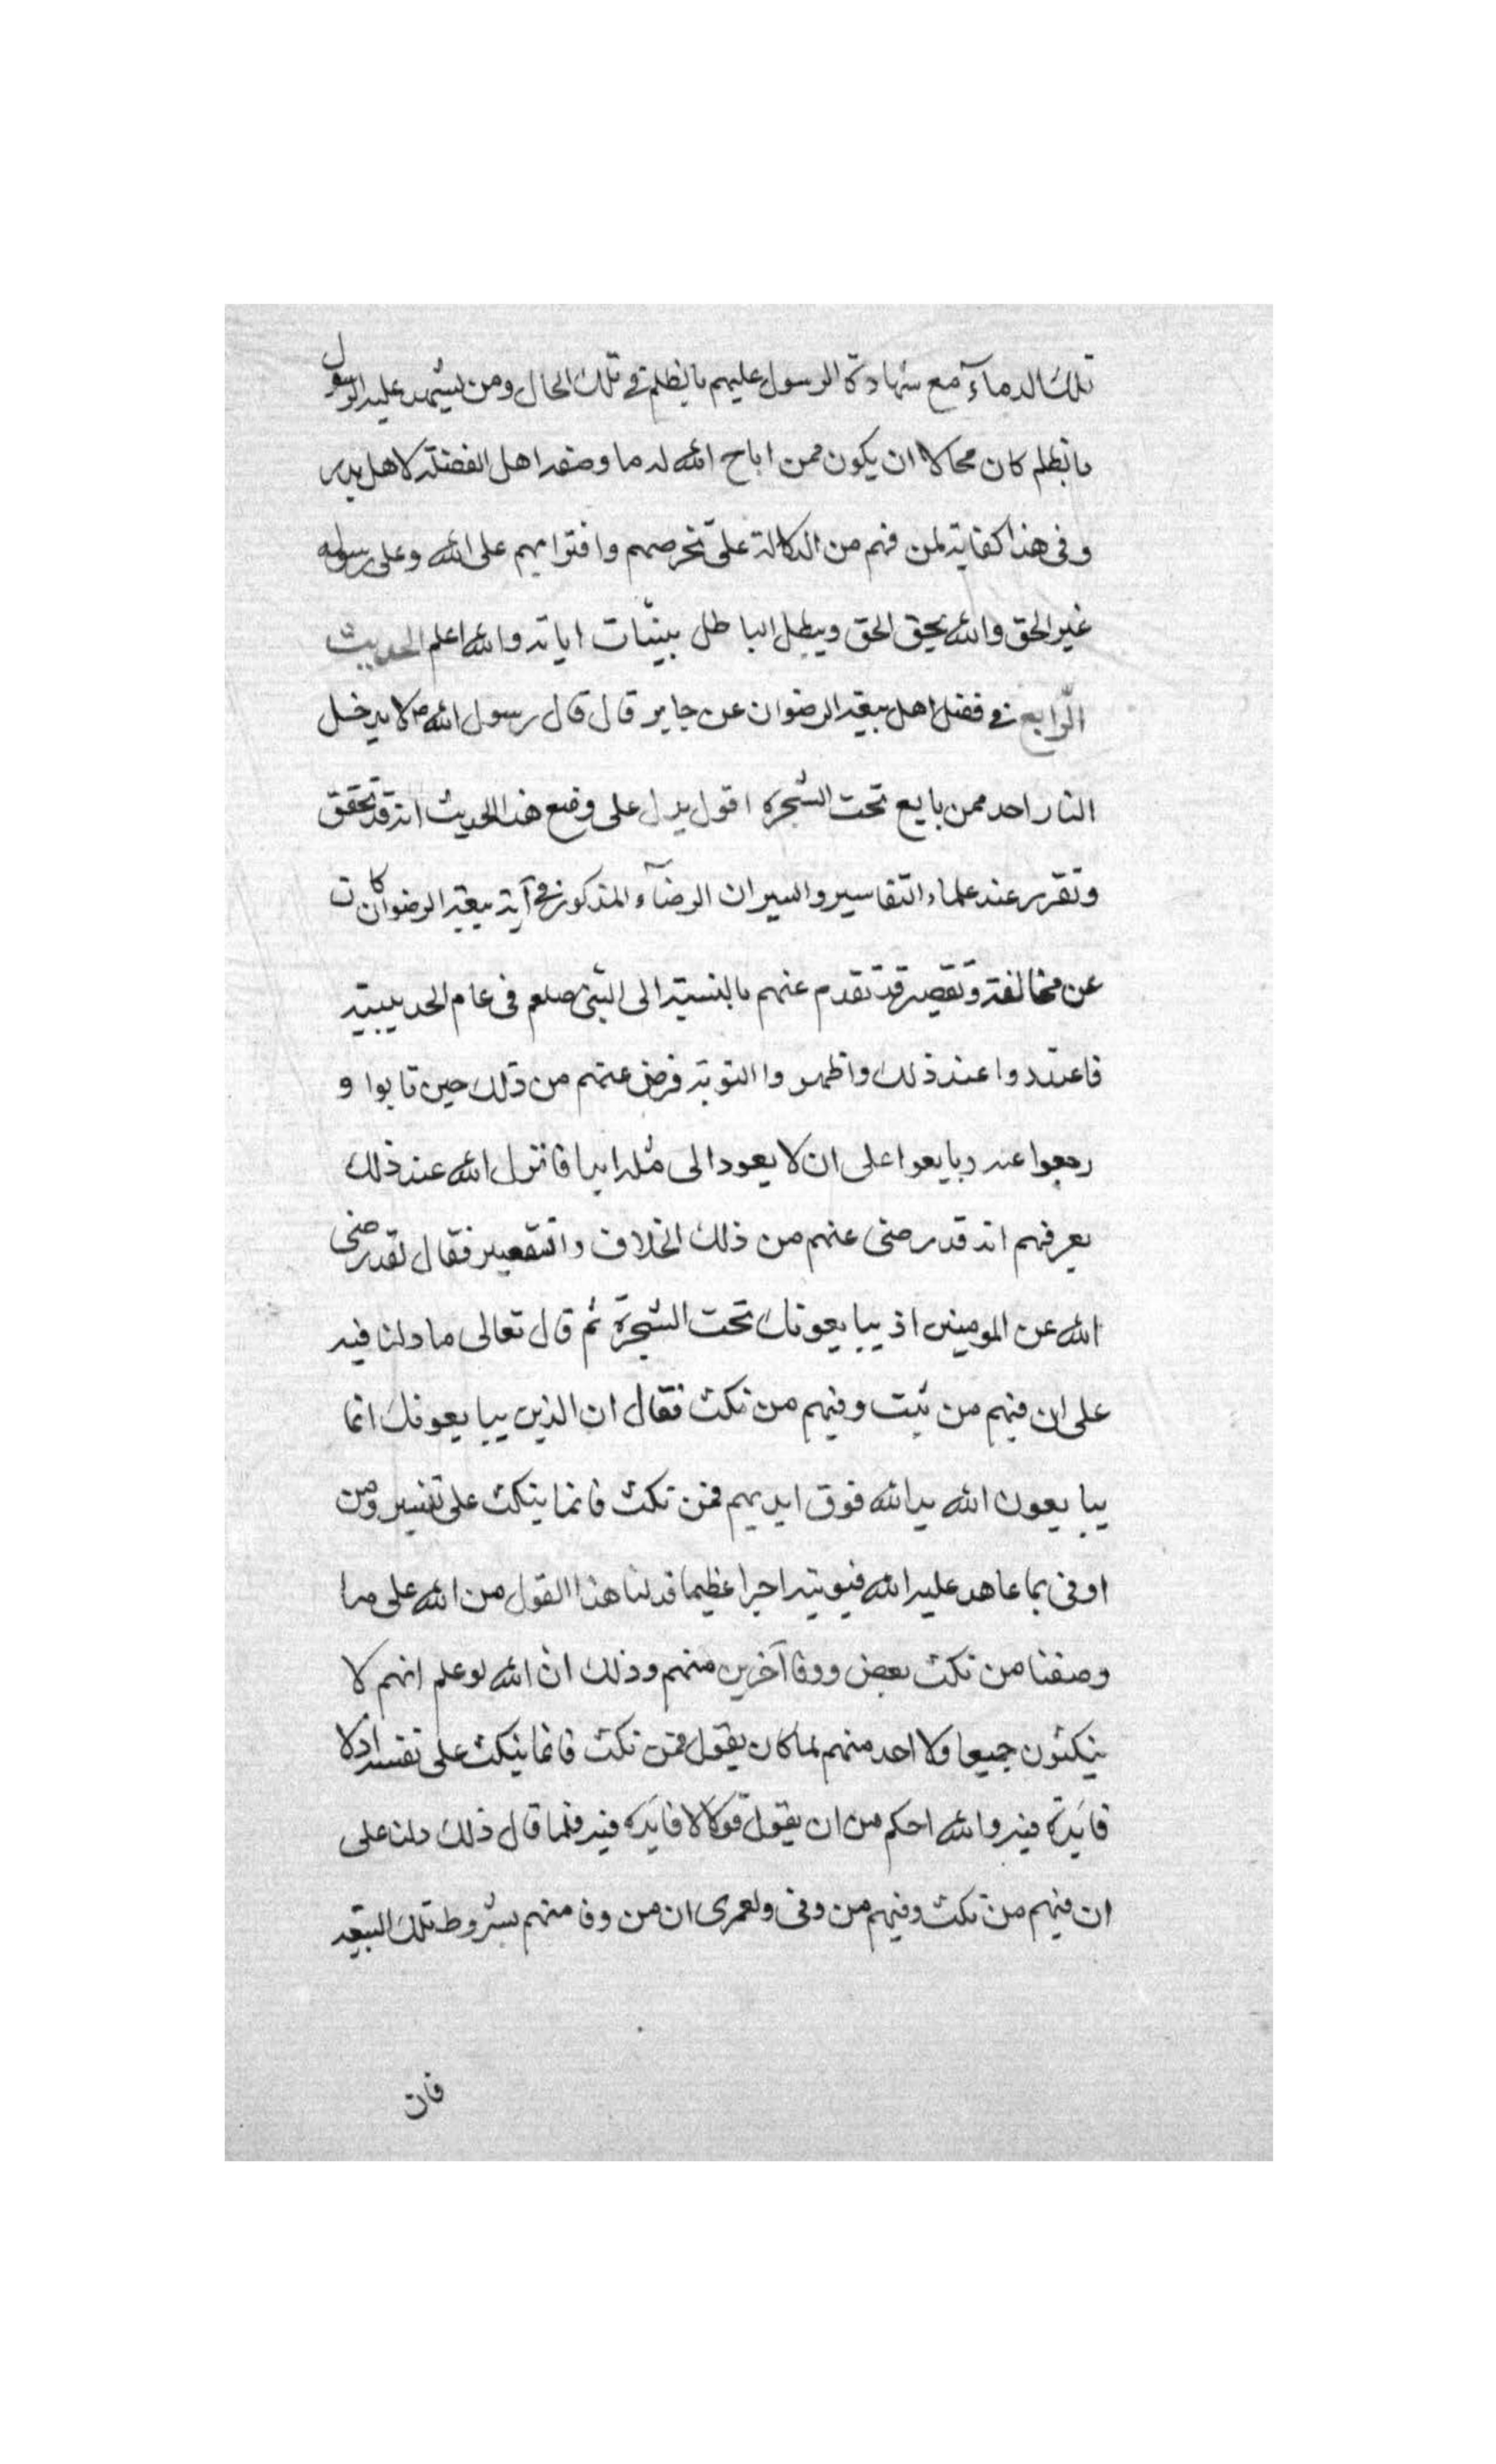 تلك الدماء مع شهادة الرسول عليهم بالظلم في تلك الحال ومن يشهد عليه الرسول
بالظلم كان محالا ان يكون ممن اباح الله له ما وصفه اهل الفضلة لاهل بدر
وفي هذا كفاية لمن فهم من الدلالة على تخرصهم وافترايهم على الله وعلى رسوله
غير الحق والله يحق الحق ويبطل الباطل ببينات اياته والله اعلم الحديث
الرابع في فضل اهل بيعة الرضوان عن جابر قال قال رسول الله ص لا يدخل
النار احد ممن بايع تحت الشجرة اقول يدل على وضع هذا الحديث انه قد تحقق
وتقرر عند علماء التفاسير والسير ان الرضاء المذكور في آية بيعة الرضوان كان
عن مخالفة وتقصير قد تقدم عنهم بالنسبة الى النبي صلعم في عام الحديبية
فاعتدوا عند ذلك واظهروا التوبة فرضي عنهم من ذلك حين تابوا و
رجعوا عنه وبايعوا على ان لا يعود الى مثله ابدا فانزل الله عند ذلك
يعرفهم انه قد رضى عنهم من ذلك الخلاف والتقصير فقال لقد رضى
الله عن المومنين اذ يبايعونك تحت الشجرة ثم قال تعالى ما دلنا فيه
على ان فيهم من ثبت وفيهم من نكث فقال ان الذين يبايعونك انما
يبايعون الله يد الله فوق ايديهم فمن نكث فانما ينكث على نفسه ومن
اوفى بما عاهد عليه الله فيوتيه اجرا عظيما فدلنا هذا القول من الله على ما
وصفنا من نكث بعض ووفا آخرين منهم وذلك ان الله لو علم انهم لا
ينكثون جميعا ولا احد منهم لما كان يقول فمن نكث فانما ينكث على نفسه اذ لا
فايدة فيه والله احكم من ان يقول قولا لا فايده فيه فلما قال ذلك دلنا على
ان فيهم من نكث وفيهم من وفى ولعمرى ان من وفا منهم بشروط تلك البيعة
فان